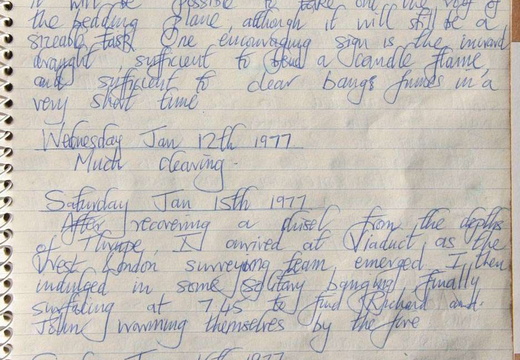 it will be possible to take one the roof of
the bedding plane although it will still be a
sizeable task One encouraging sign is the inward
draught, sufficient to bend a candle flame,
and sufficient to clear bang fumes in a
very short time
Wednesday Jan 12th 1977
Much clearing -
Saturday Jan 15th 1977
After recovering a chisel from the depths
of Thrupe, I arrived at Viaduct as the
West London surveying team emerged. I then
indulged in some solitary banging, finally
surfacing at 7.45 to find Richard and
John warming themselves by the fire
Jan 1977